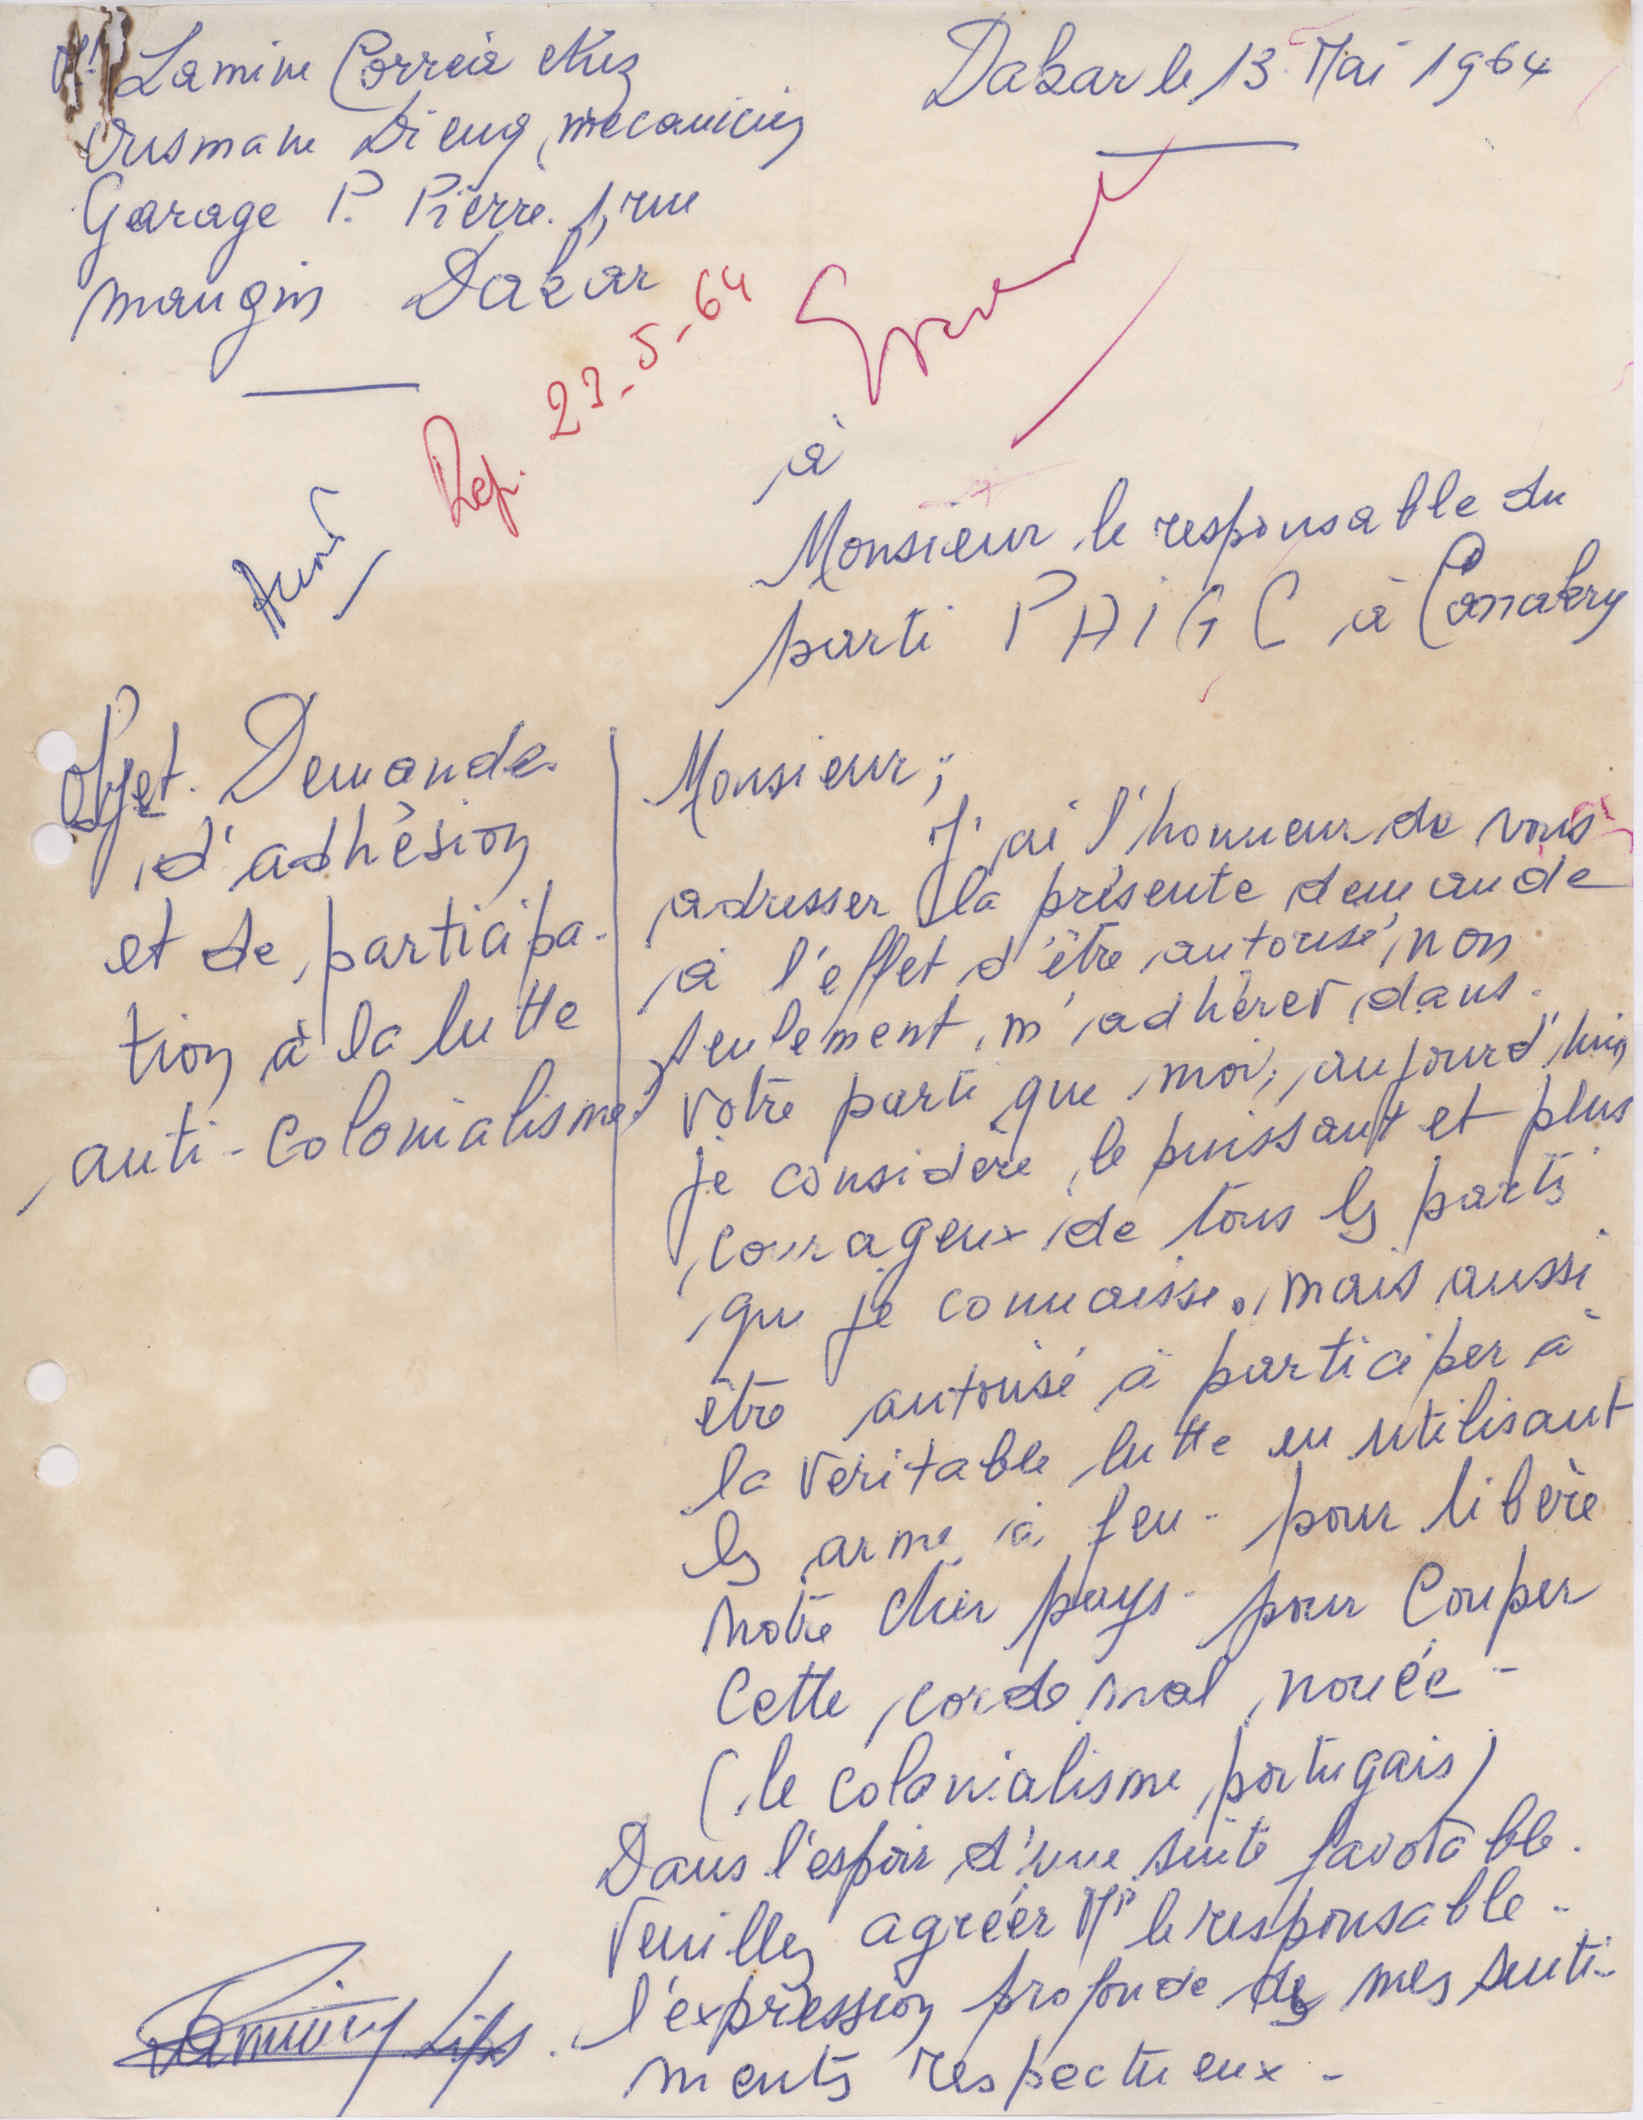 Mr Lamine Correia chez
Ousmane Dieng, mecanicien
Garage P. Pierre. 1, rue
mangin Dakar
Dakar le 13 Mai 1964
Rep. 23-5-64
à
Monsieur le responsable du
parti PAIGC à Conakry
Objet. Demande
d'adhésion
et de participa-
tion à la lutte
anti-colonialisme
Monsieur;
J'ai l'honneur de vous
adresser la présente demande
à l'effet d'être autorisé, non
seulement, m'adhérer dans
votre parti que moi, aujourd'hui,
je considère le puissant et plus
courageux de tous les partis
que je connaisse, mais aussi
être autorisé à participer à
la veritable lutte en utilisant
les arme à feu - pour libère
notre cher pays - pour couper
cette corde mal nouée -
(le colonialisme portugais)
Dans l'espoir d'une suite favorable.
Veuillez agréér Mr le responsable -
l'expression profonde de mes senti-
ments respectueux -